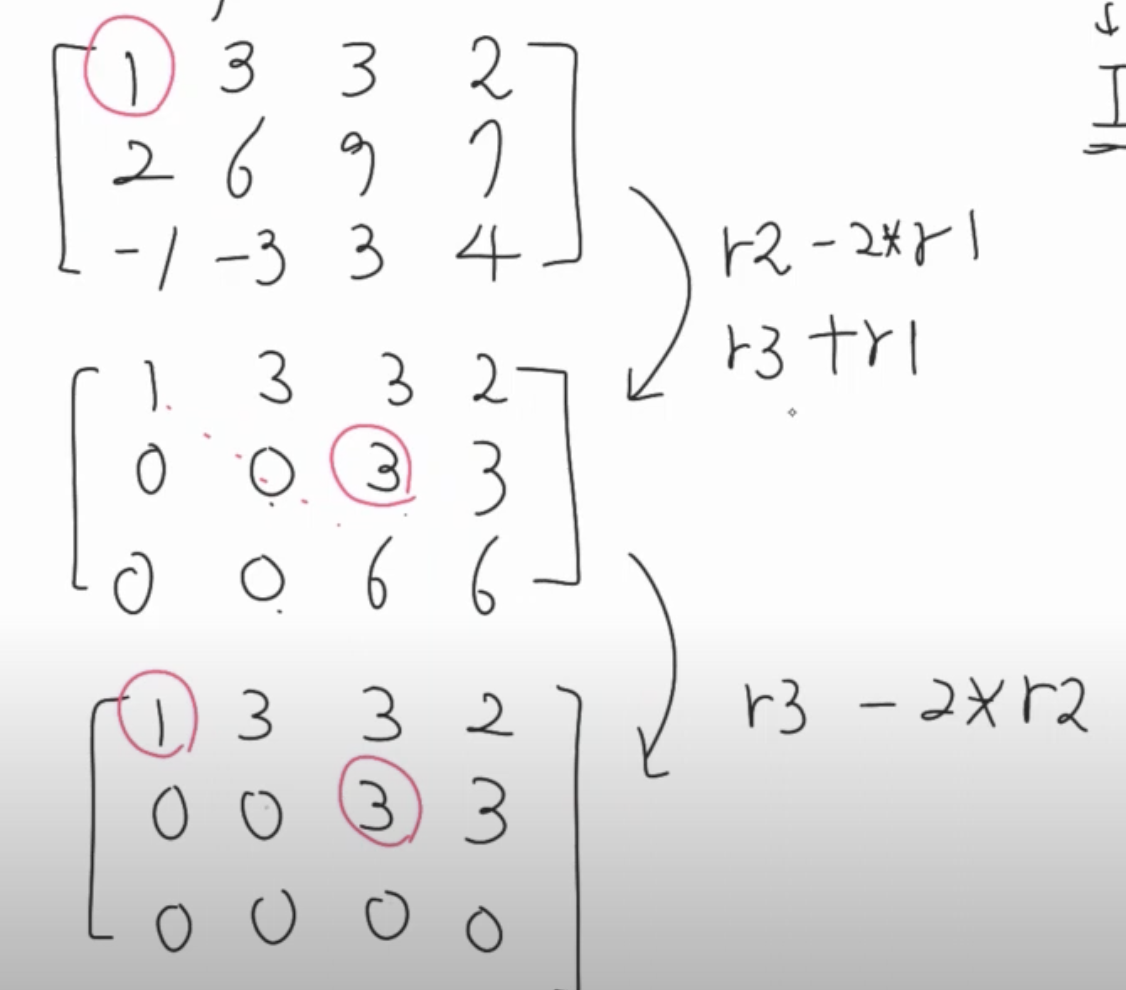 1 3 3 2
I
2 6 9 7
-1 -3 3 4
r2 - 2*r1
r3 + r1
1 3 3 2
0 0 3 3
0 0 6 6
r3 - 2*r2
1 3 3 2
0 0 3 3
0 0 0 0